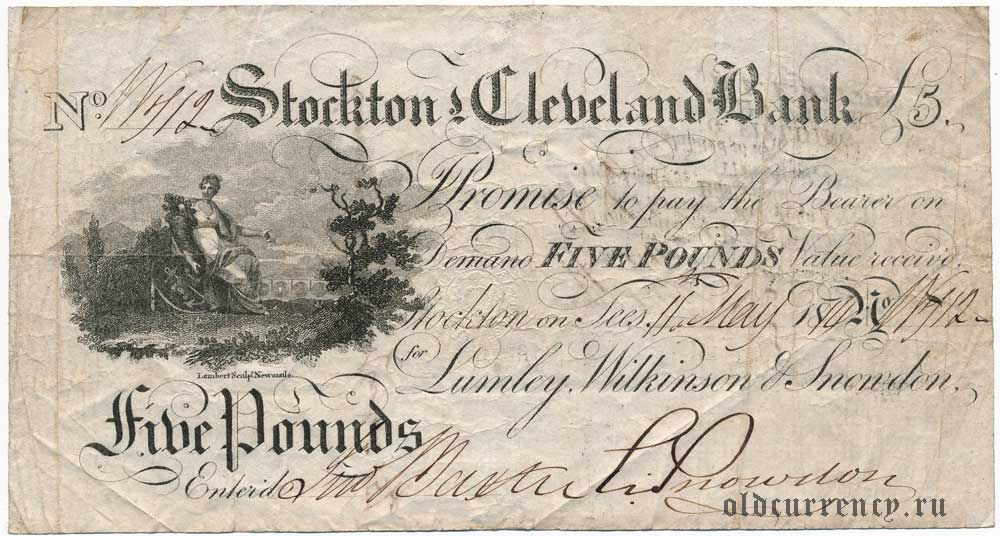 No.
Stockton & Cleveland Bank £5.
I Promise to pay the Bearer on
Demand FIVE POUNDS Value receive
Stockton on Tees May 18 No
for
Lumley, Wilkinson & Snowdon.
Lambert Sculpt. Newcastle.
Five Pounds
Enter'd Baxter Snowdon
oldcurrency.ru